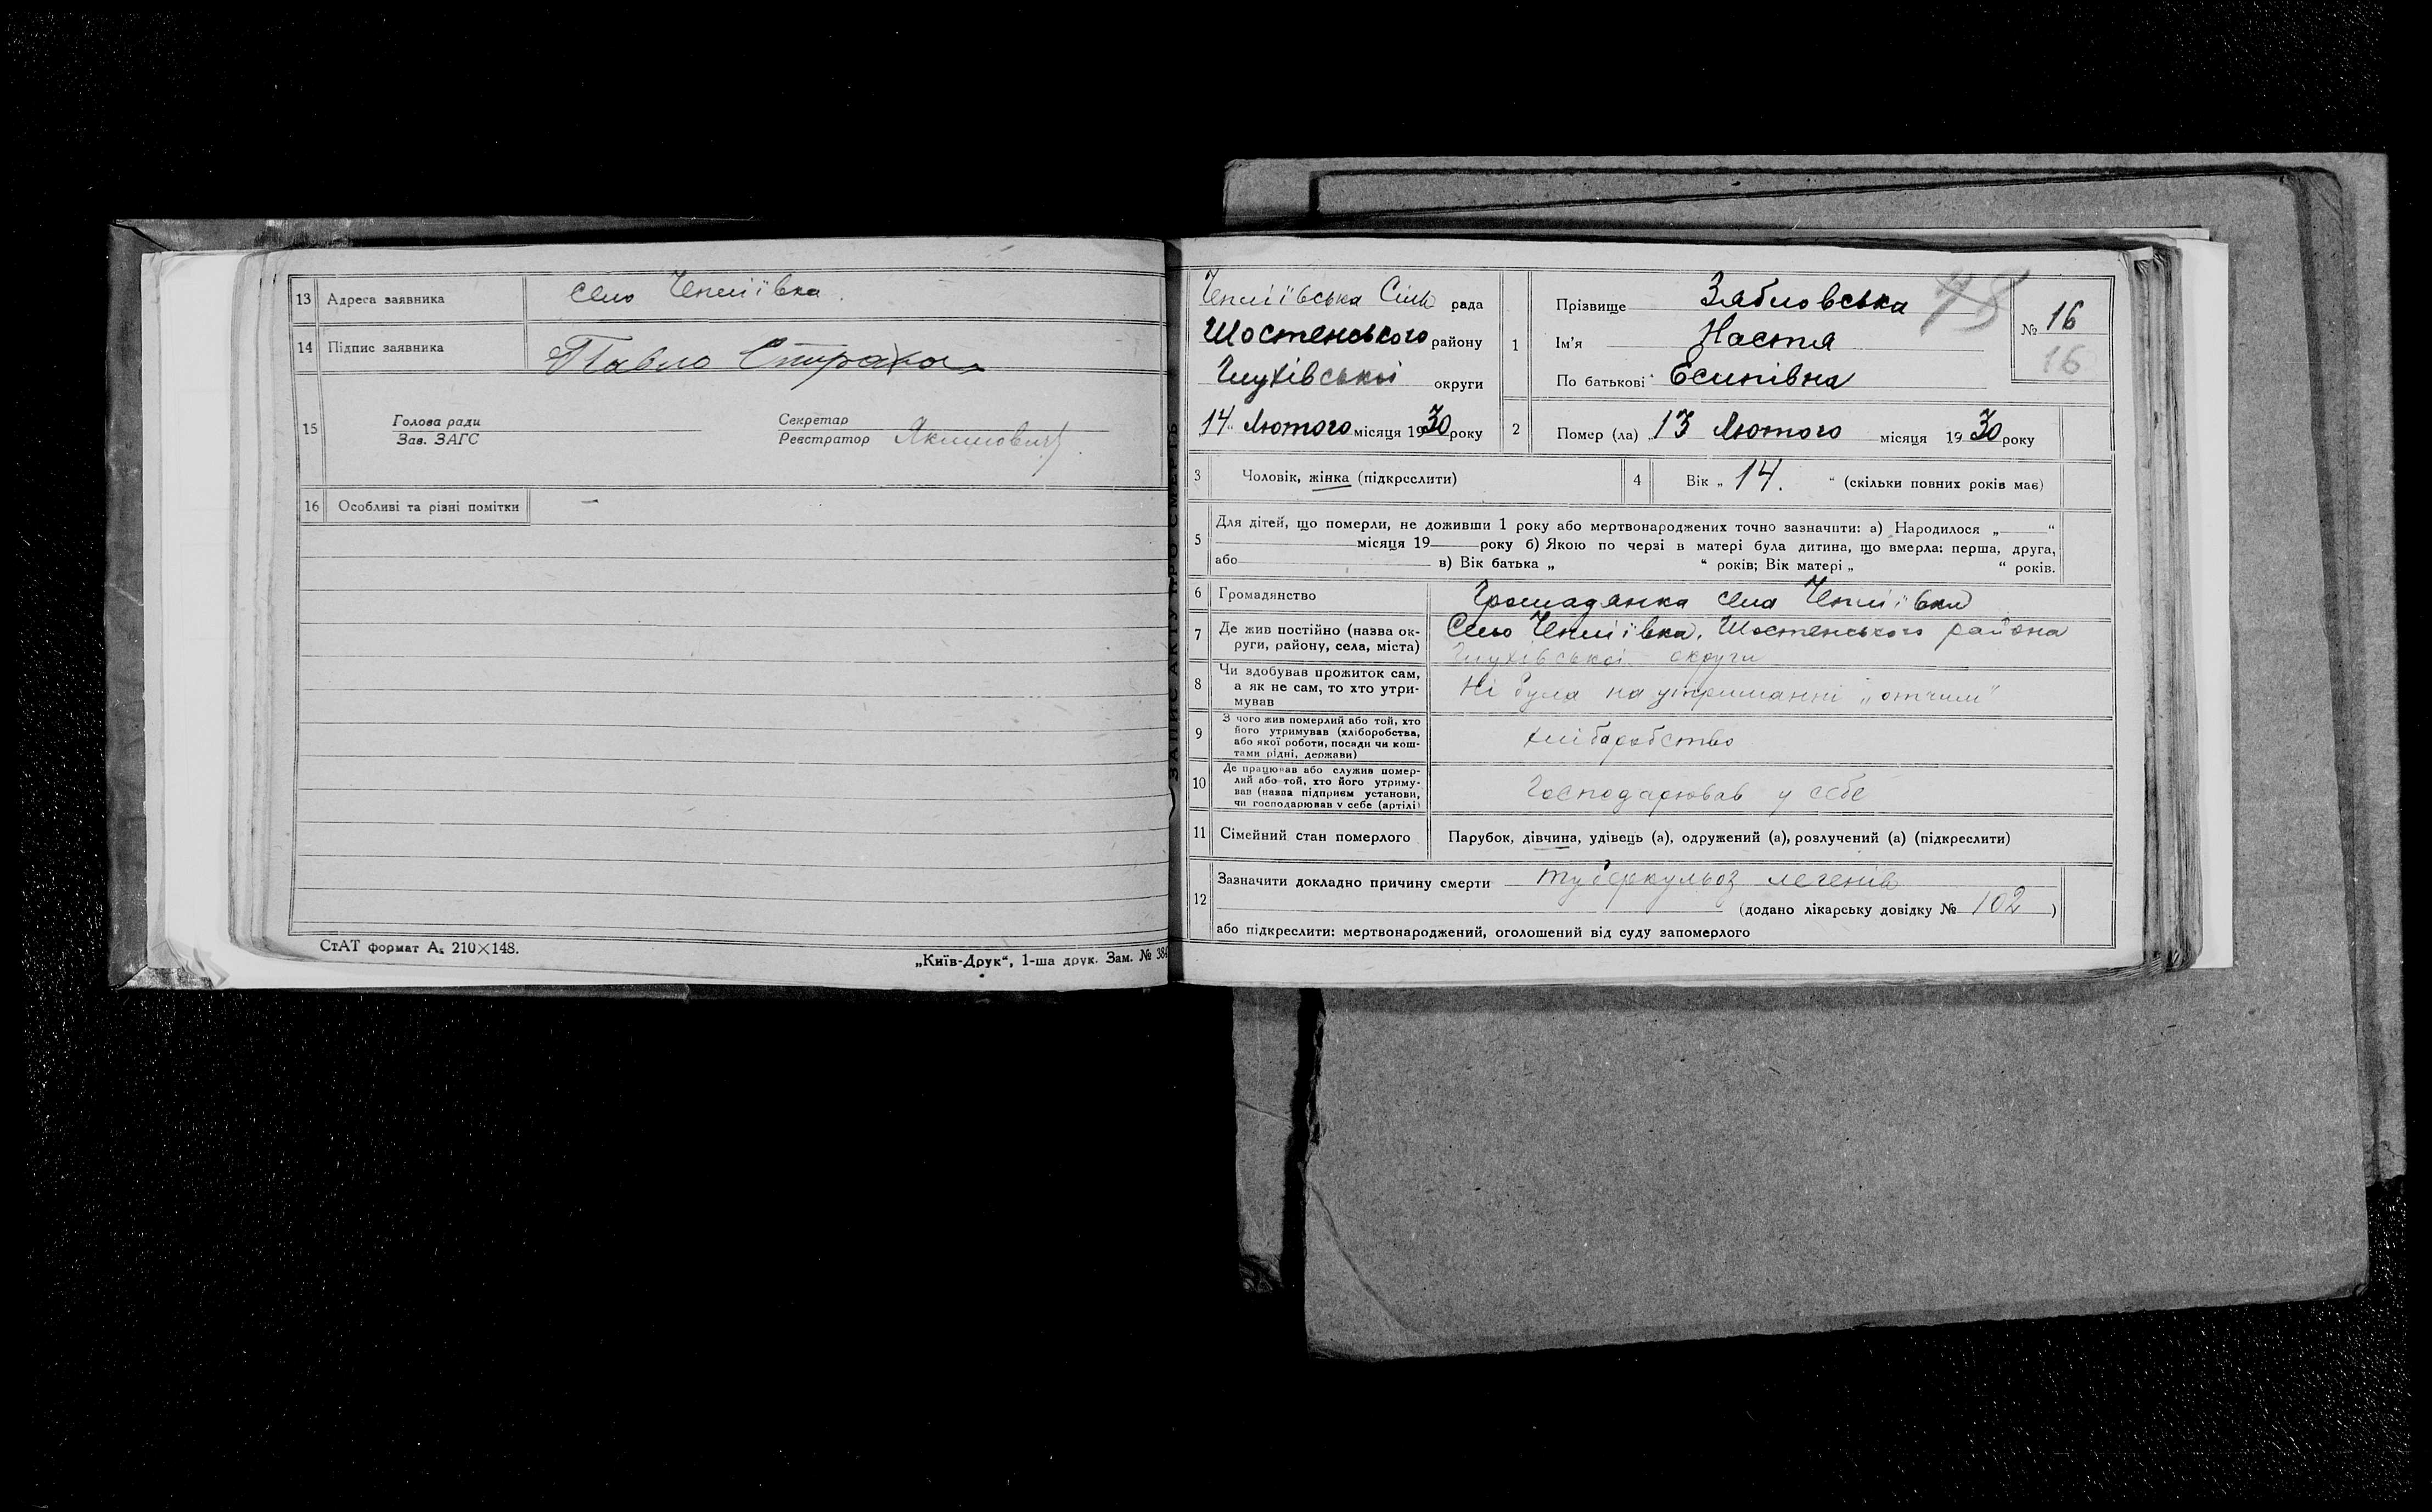 13 Адреса заявника село Чепліївка.
14 Підпис заявника Павло
15 Голова ради Секретар
Зав. ЗАГС Реєстратор Якимович
16 Особливі та різні помітки —
СтАТ формат А₅ 210×148.
„Київ-Друк“, 1-ша друк. Зам. № 384
ЗАПИС АКТУ ПРО СМЕРТЬ
Чепліївська Сіль рада
Шостенського району
Глухівської округи
14 Лютого місяця 1930 року
1 Прізвище Забловська
Ім'я Настя
По батькові Есипівна
78
№ 16
16
2 Помер (ла) 13 Лютого місяця 1930 року
3 Чоловік, жінка (підкреслити)
4 Вік „ 14. “ (скільки повних років має)
5 Для дітей, що померли, не доживши 1 року або мертвонароджених точно зазначити: а) Народилося „ “
місяця 19 року б) Якою по черзі в матері була дитина, що вмерла: перша, друга,
або в) Вік батька „ “ років; Вік матері „ “ років.
6 Громадянство Громадянка села Чепліївки
7 Де жив постійно (назва ок-
руги, району, села, міста)
Село Чепліївка, Шостенського района
Глухівської округи
8 Чи здобував прожиток сам,
а як не сам, то хто утри-
мував
Ні була на утриманні „отчим“
9 З чого жив померлий або той, хто
його утримував (хліборобства,
або якої роботи, посади чи кош-
тами рідні, держави)
хліборобство
10 Де працював або служив помер-
лий або той, хто його утриму-
вав (назва підприєм установи,
чи господарював у себе (артілі)
Господарював у себе
11 Сімейний стан померлого Парубок, дівчина, удівець (а), одружений (а), розлучений (а) (підкреслити)
12 Зазначити докладно причину смерти туберкульоз легенів
(додано лікарську довідку № 102 )
або підкреслити: мертвонароджений, оголошений від суду запомерлого